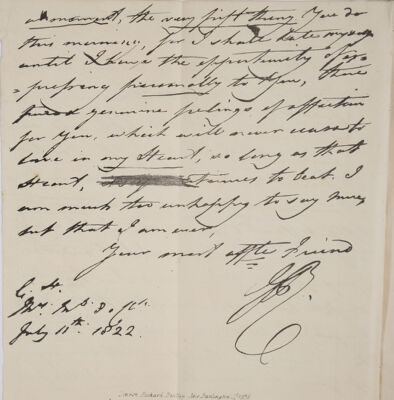 a moment, the very first thing You do
this morning, for I shall hate myself
until I have the opportunity of ex=
=pressing personally to You, those
genuine feelings of affection
for You, which will never cease to
live in my Heart, so long as that
Heart, tinues to beat. I
am much too unhappy to say more,
but that I am ever,
Your most affte. Friend
C. H.
July 11th. 1822.